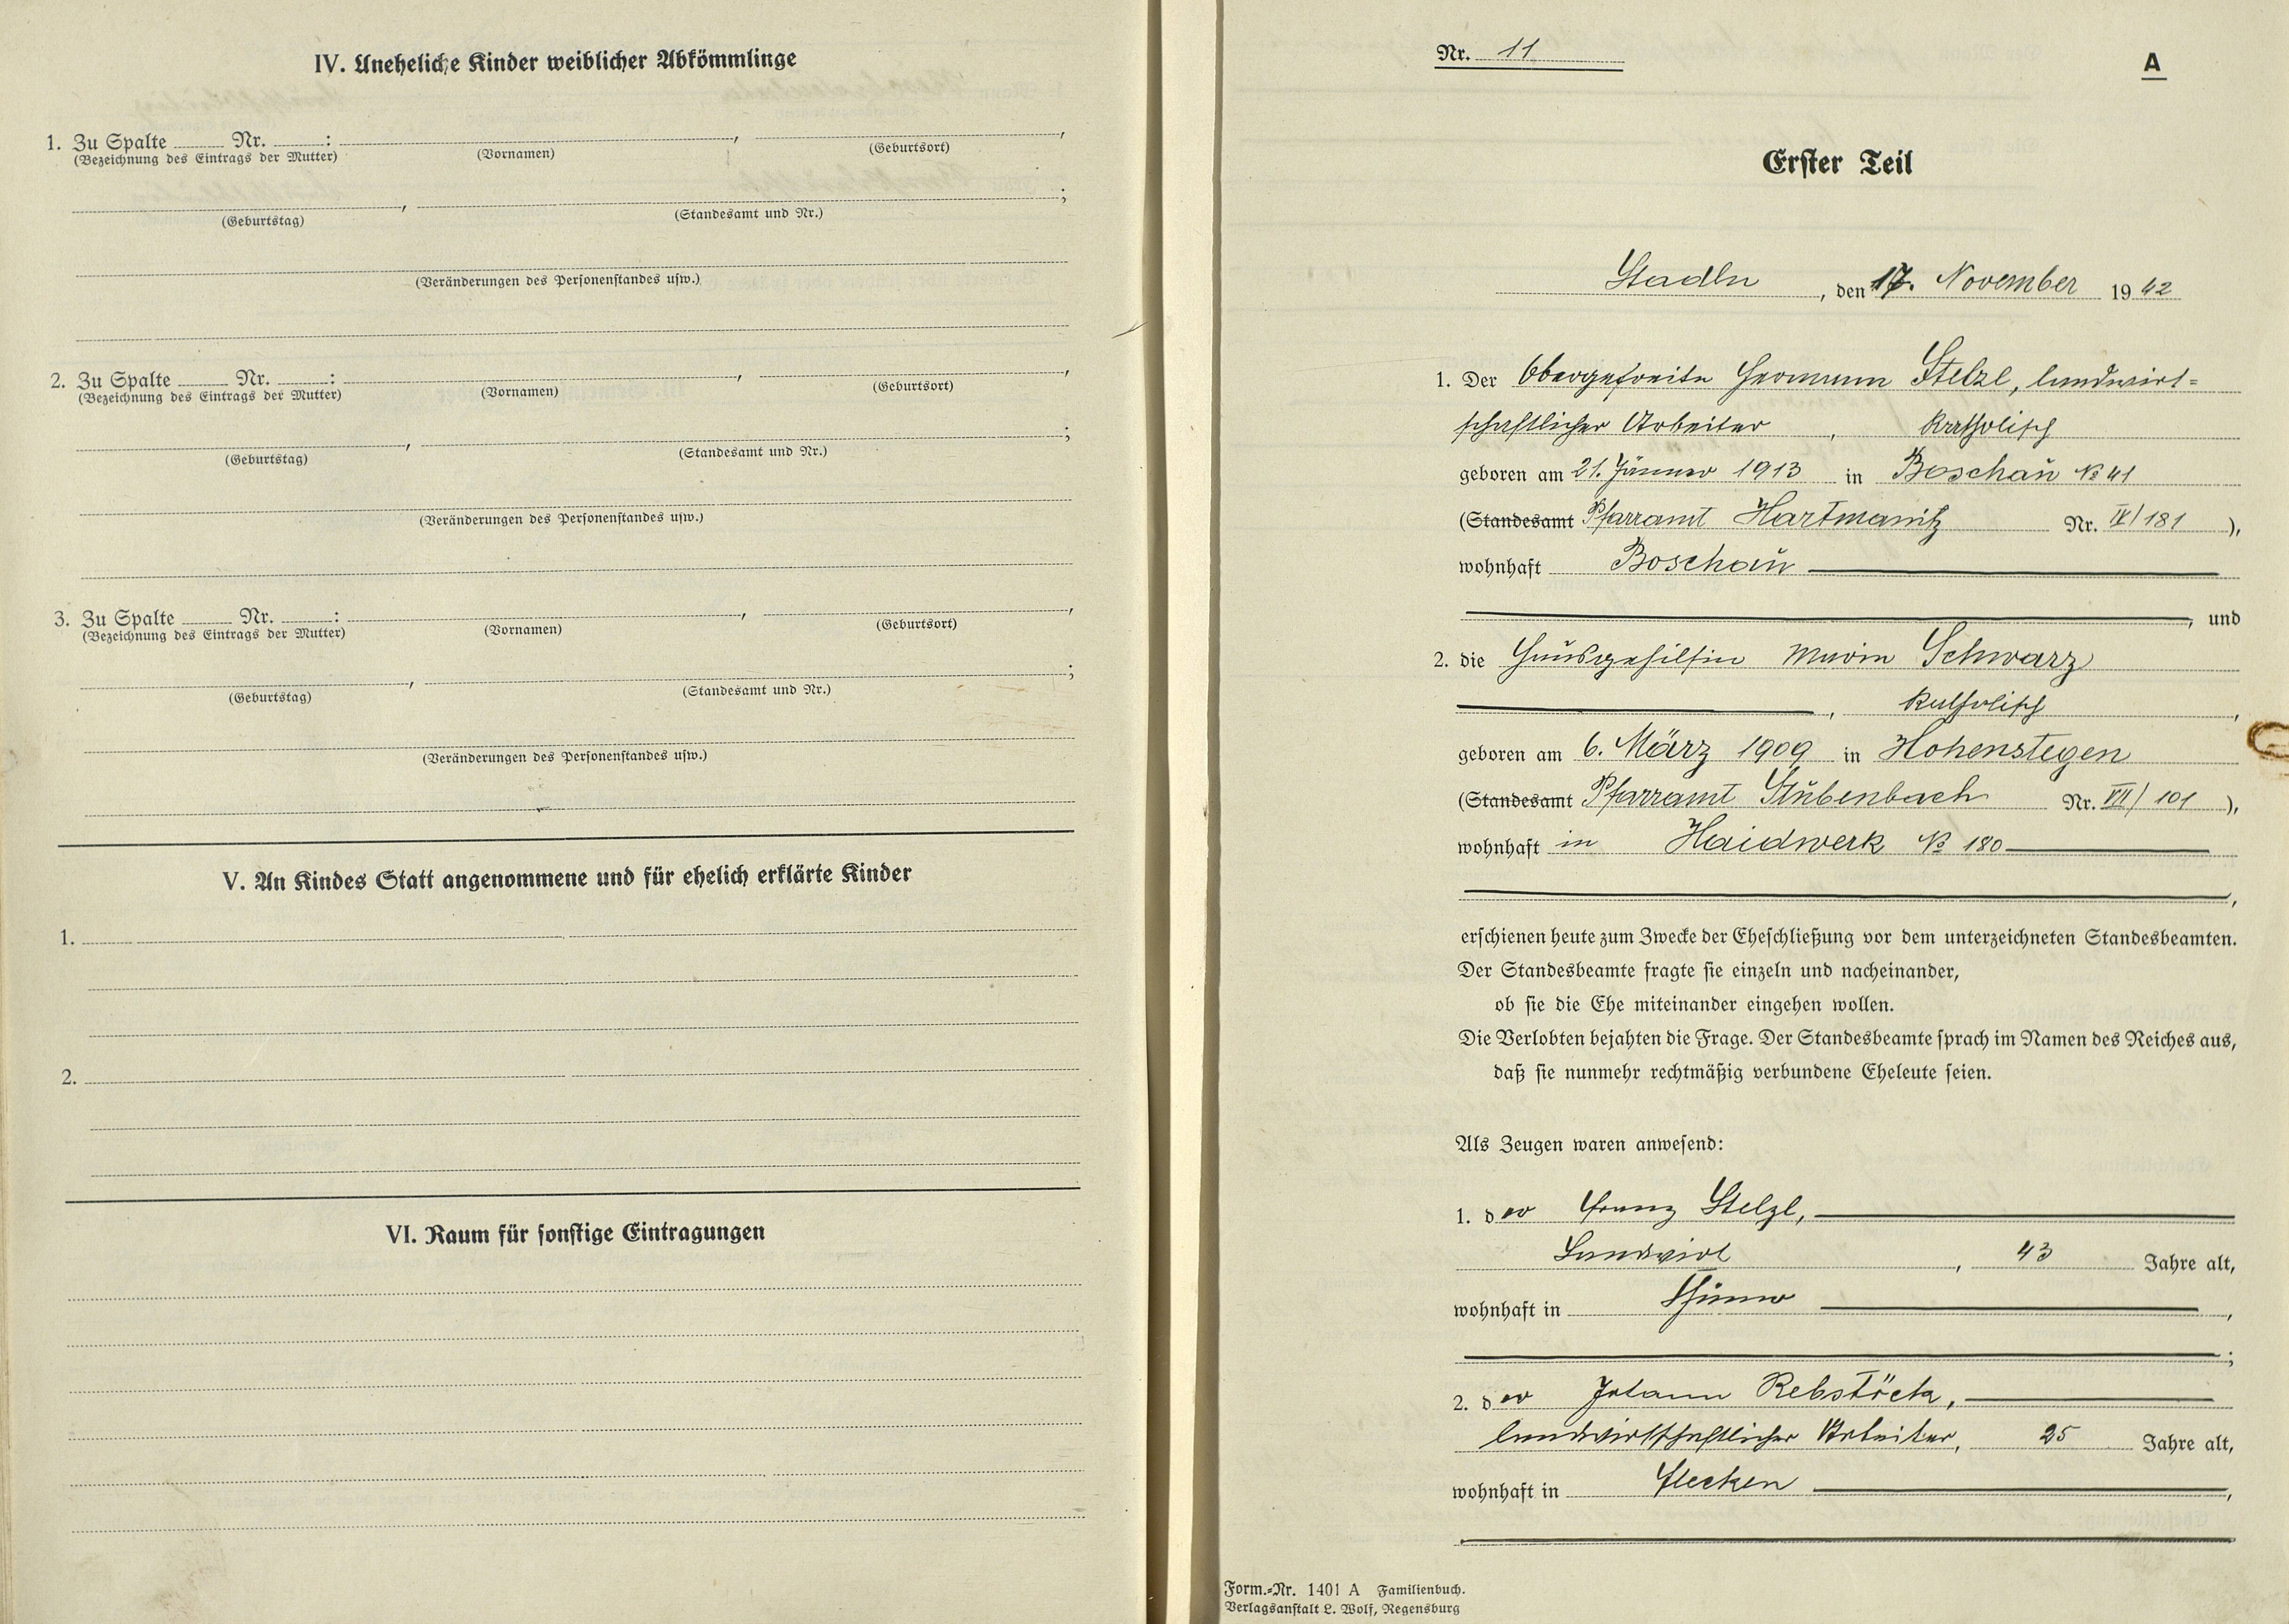 IV. Uneheliche Kinder weiblicher Abkömmlinge
1. Zu Spalte Nr. : , ,
(Bezeichnung des Eintrags der Mutter) (Vornamen) (Geburtsort)
, ;
(Geburtstag) (Standesamt und Nr.)
(Veränderungen des Personenstandes usw.)
2. Zu Spalte Nr. : , ,
(Bezeichnung des Eintrags der Mutter) (Vornamen) (Geburtsort)
, ;
(Geburtstag) (Standesamt und Nr.)
(Veränderungen des Personenstandes usw.)
3. Zu Spalte Nr. : , ,
(Bezeichnung des Eintrags der Mutter) (Vornamen) (Geburtsort)
, ;
(Geburtstag) (Standesamt und Nr.)
(Veränderungen des Personenstandes usw.)
V. An Kindes Statt angenommene und für ehelich erklärte Kinder
1.
2.
VI. Raum für sonstige Eintragungen
Nr. 11
A
Erster Teil
Stadln, den 17. November 1942
1. Der Obergefreite Hermann Stelzl, landwirt-
schaftlicher Arbeiter, katholisch
geboren am 21. Jänner 1913 in Boschau № 41
(Standesamt Pfarramt Hartmanitz Nr. IX/181),
wohnhaft Boschau
, und
2. die Hausgehilfin Maria Schwarz
, katholisch,
geboren am 6. März 1909 in Hohenstegen
(Standesamt Pfarramt Stubenbach Nr. VII/101),
wohnhaft in Haidwerk № 180
,
erschienen heute zum Zwecke der Eheschließung vor dem unterzeichneten Standesbeamten.
Der Standesbeamte fragte sie einzeln und nacheinander,
ob sie die Ehe miteinander eingehen wollen.
Die Verlobten bejahten die Frage. Der Standesbeamte sprach im Namen des Reiches aus,
daß sie nunmehr rechtmäßig verbundene Eheleute seien.
Als Zeugen waren anwesend:
1. der Franz Stelzl,
Landwirt, 43 Jahre alt,
wohnhaft in ,
;
2. der Johann Rebstöck,
landwirtschaftlicher Arbeiter, 25 Jahre alt,
wohnhaft in Flecken,
Form.-Nr. 1401 A Familienbuch.
Verlagsanstalt L. Wolf, Regensburg